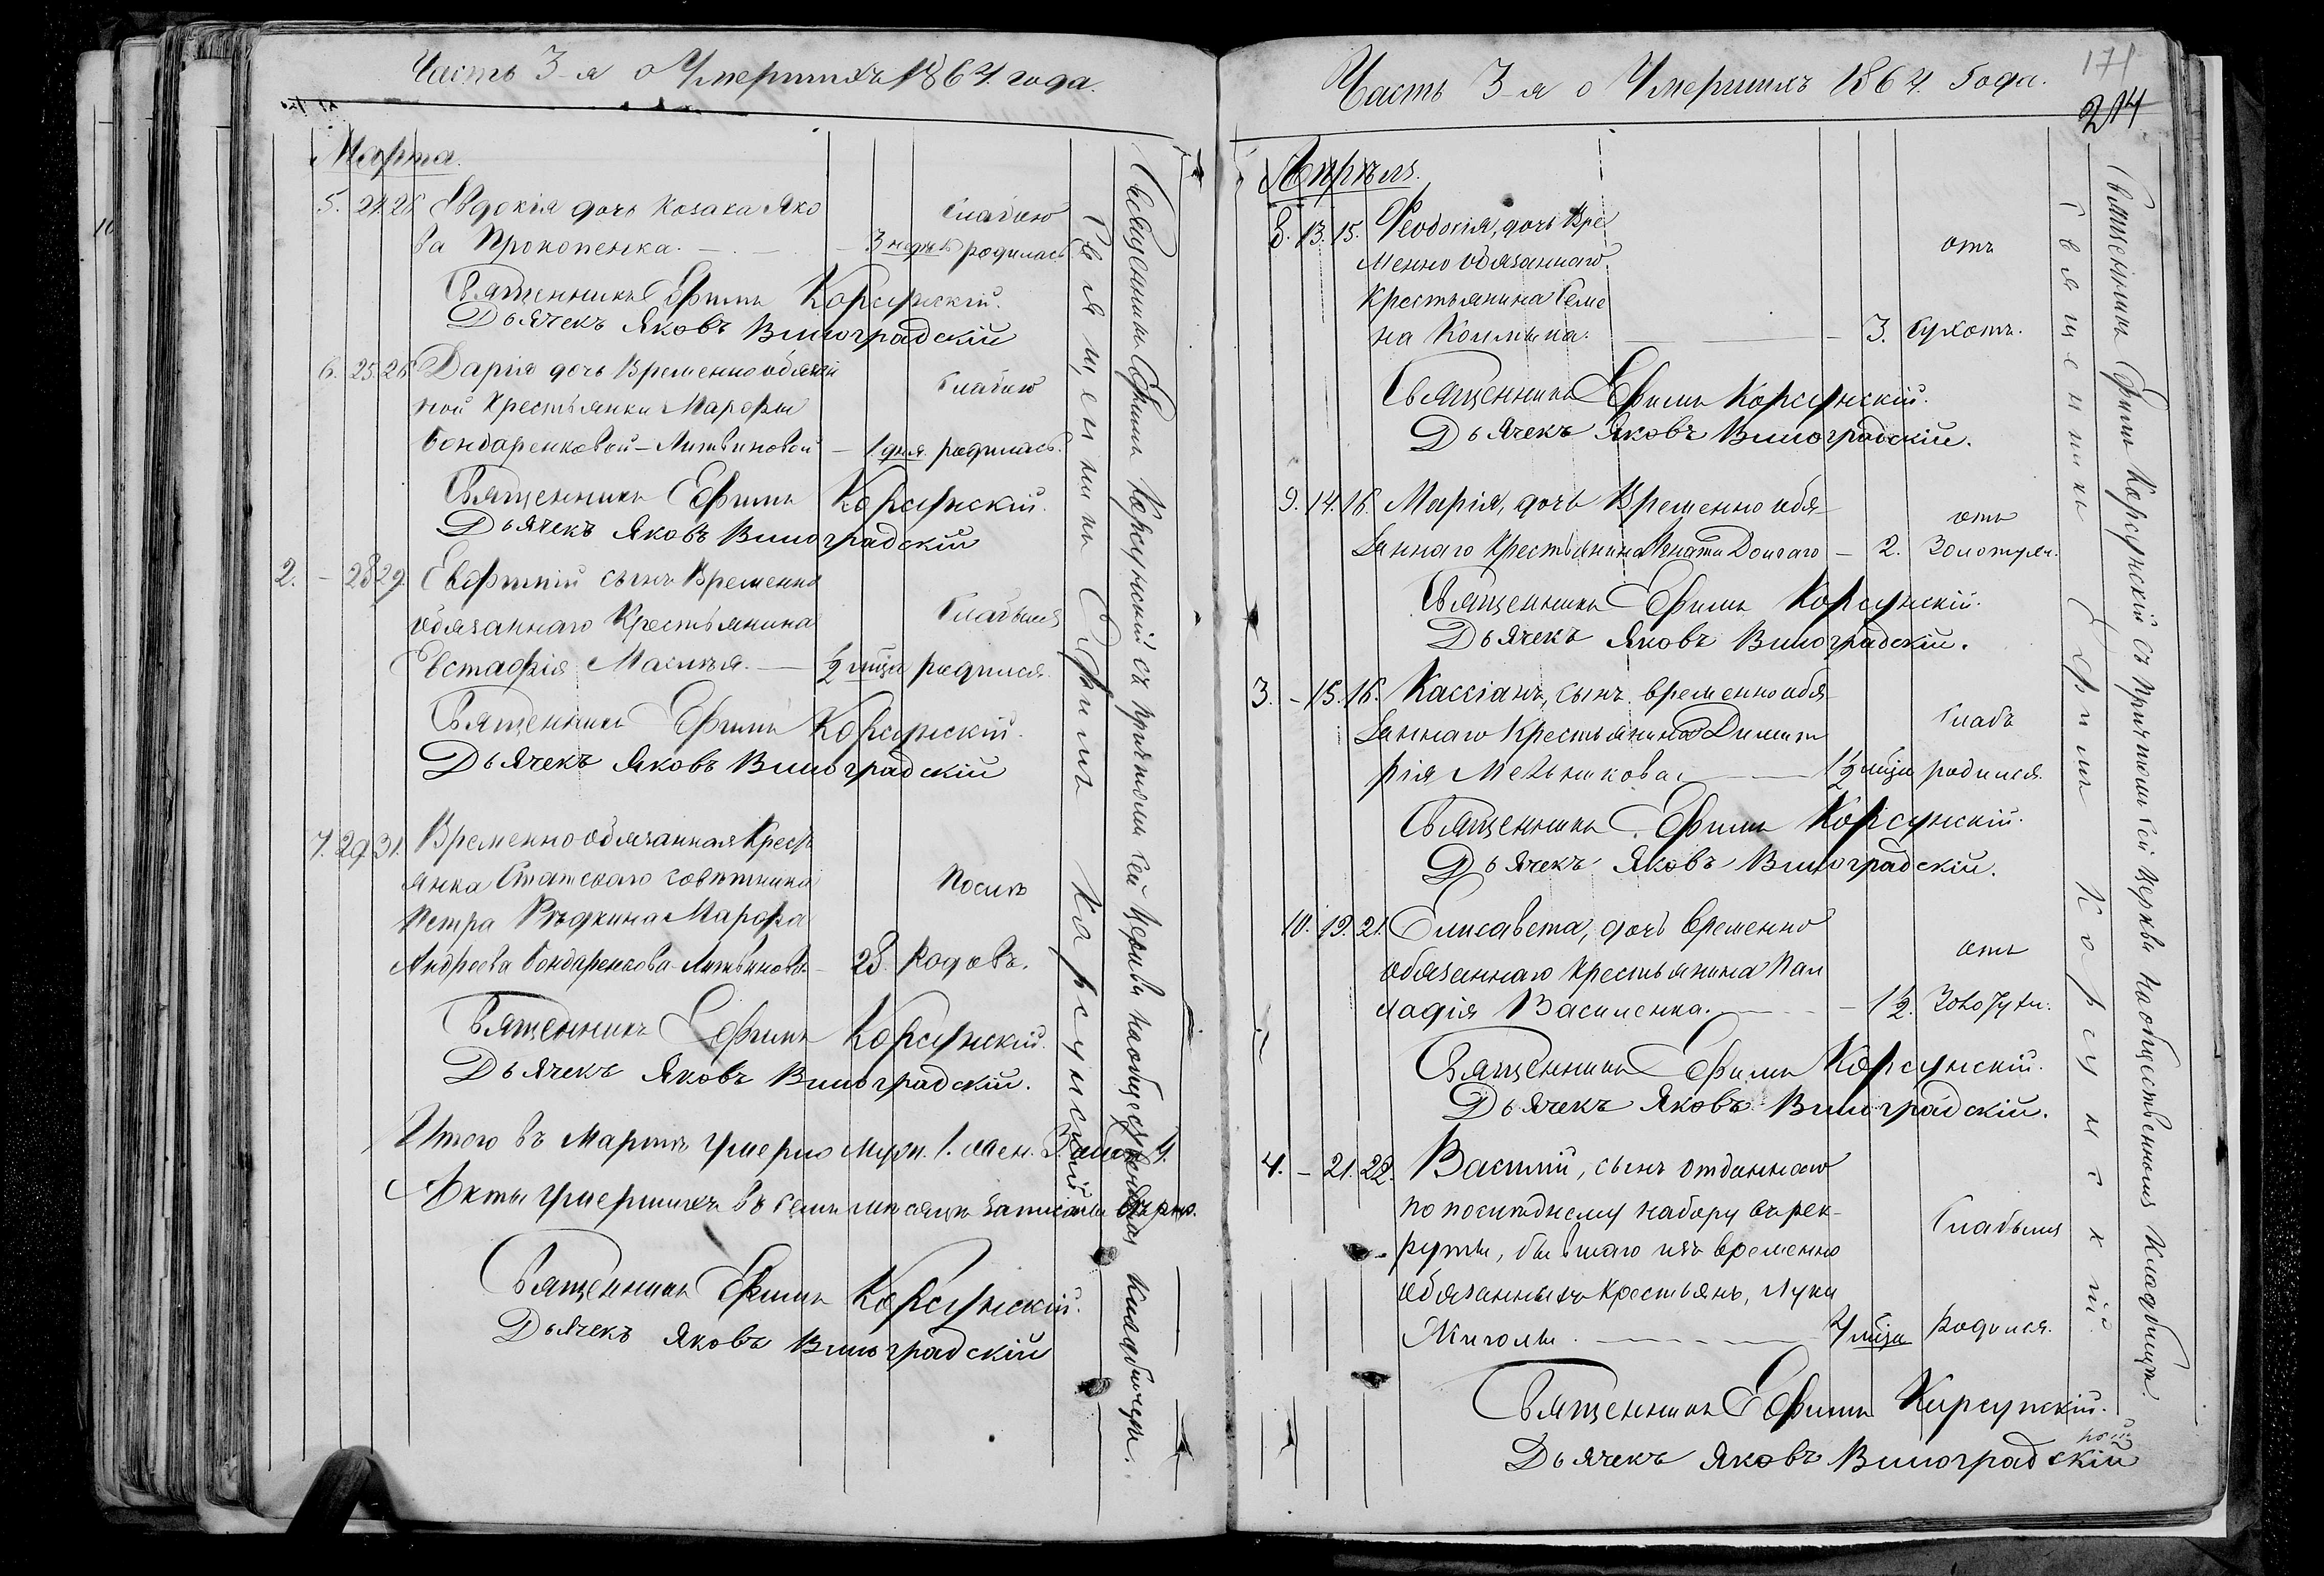 Часть 3-я о Умершихъ 1864. года.
Марта.
5. 24. 26. Евдокія дочь козака Яко
ва Прокопенка. — 3 недѣль слабою родилась
Священникъ Ефимъ Корсунскій.
Дьячекъ Яковъ Виноградскій
6. 25. 26. Дарія дочь Временнообязан
ной Крестьянки Марфы слабою
Бондаренковой-Литвиновой — 1. дня родилась.
Священникъ Ефимъ Корсунскій.
Дьячекъ Яковъ Виноградскій
2. — 28 29. Евфимій сынъ Временно
обязаннаго Крестьянина слабымъ
Евстафія — ½ мѣца родился.
Священникъ Ефимъ Корсунскій.
Дьячекъ Яковъ Виноградскій
7. 29 31. Временно-обязанная Кресть
янка Статскаго совѣтника послѣ
Петра Рѣдкина Марфа
Андреева Бондаренкова-Литвинова — 28. родовъ.
Священникъ Ефимъ Корсунскій.
Дьячекъ Яковъ Виноградскій.
Итого въ Мартѣ умерло муж. 1. жен. 3. обоего 4.
Акты умершихъ въ семъ мѣсяцѣ записаны вѣрно.
Священникъ Ефимъ Корсунскій.
Дьячекъ Яковъ Виноградскій
Священникъ Ефимъ Корсунскій
Священникъ Ефимъ Корсунскій съ причтомъ сей церкви на общественномъ кладбищѣ.
Часть 3-я о Умершихъ 1864. Года.
171
214
Апрѣля.
8. 13. 15. Феодосія, дочь Вре
менно обязаннаго отъ
Крестьянина Семе
на — 3. сухотъ.
Священникъ Ефимъ Корсунскій.
Дьячекъ Яковъ Виноградскій.
9. 14. 16. Марія, дочь Временно обя- отъ
заннаго Крестьянина Игната Долгаго — 2. Золотухи.
Священникъ Ефимъ Корсунскій.
Дьячекъ Яковъ Виноградскій.
3. — 15. 16. Кассіанъ, сынъ временно обя-
заннаго Крестьянина Димит слабъ
рія Мельникова — 1½ мѣца родился.
Священникъ Ефимъ Корсунскій.
Дьячекъ Яковъ Виноградскій.
10. 19. 21. Елисавета, дочь временно
обязаннаго крестьянина Пал отъ
ладія Василенка. — 1½. Золотухи.
Священникъ Ефимъ Корсунскій.
Дьячекъ Яковъ Виноградскій.
4. — 21. 22. Василій, сынъ отданнаго
по послѣднему набору въ рек-
руты, бывшаго изъ временно слабымъ
обязанныхъ крестьянъ, Луки
Миголы. — мѣца родился.
Священникъ Ефимъ Корсунскій.
Дьячекъ Яковъ Виноградскій
Священникъ Ефимъ Корсунскій.
Священникъ Ефимъ Корсунскій съ причтомъ сей церкви на общественномъ кладбищѣ.